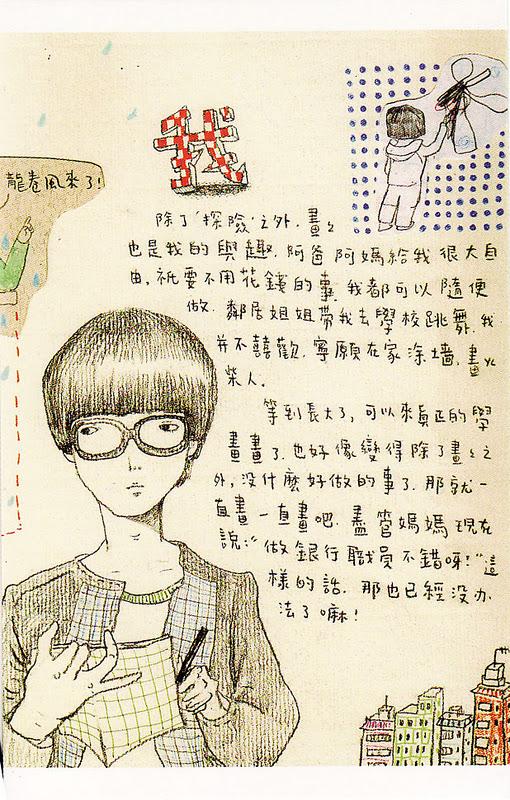 我
龍卷風來了!
除了‘探險’之外. 畫々
也是我的興趣. 阿爸阿媽給我很大自
由. 祇要不用花錢的事. 我都可以隨便
做. 鄰居姐姐帶我去學校跳舞. 我
并不喜歡. 寧願在家涂墙. 畫火
柴人.
等到長大了, 可以來真正的學
畫畫了. 也好像變得除了畫々之
外, 没什麽好做的事了. 那就一
直畫一直畫吧. 盡管媽媽現在
説:“做銀行職員不錯呀!”這
樣的話. 那也已經没办
法了嘛!